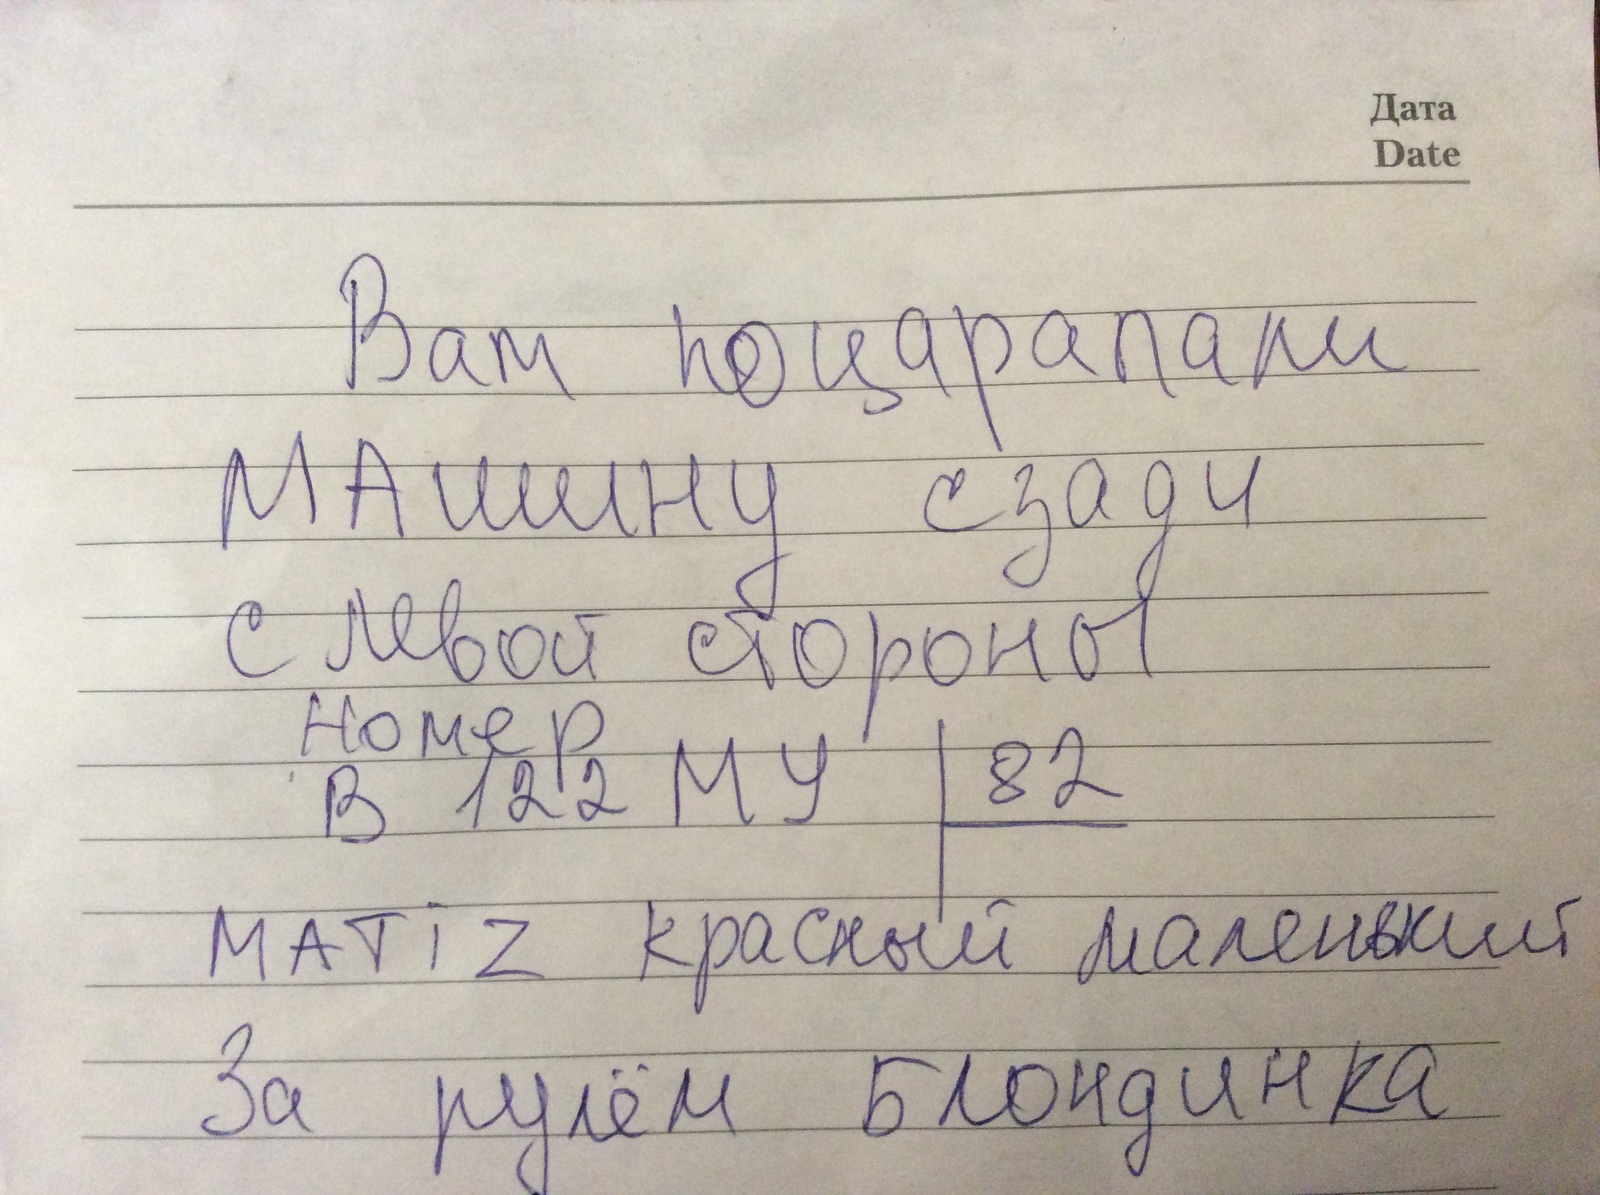 Дата
Date
Вам поцарапали
МАшину сзади
с левой стороны
Номер
В 122 МУ 82
MATiZ красный маленький
За рулём Блондинка